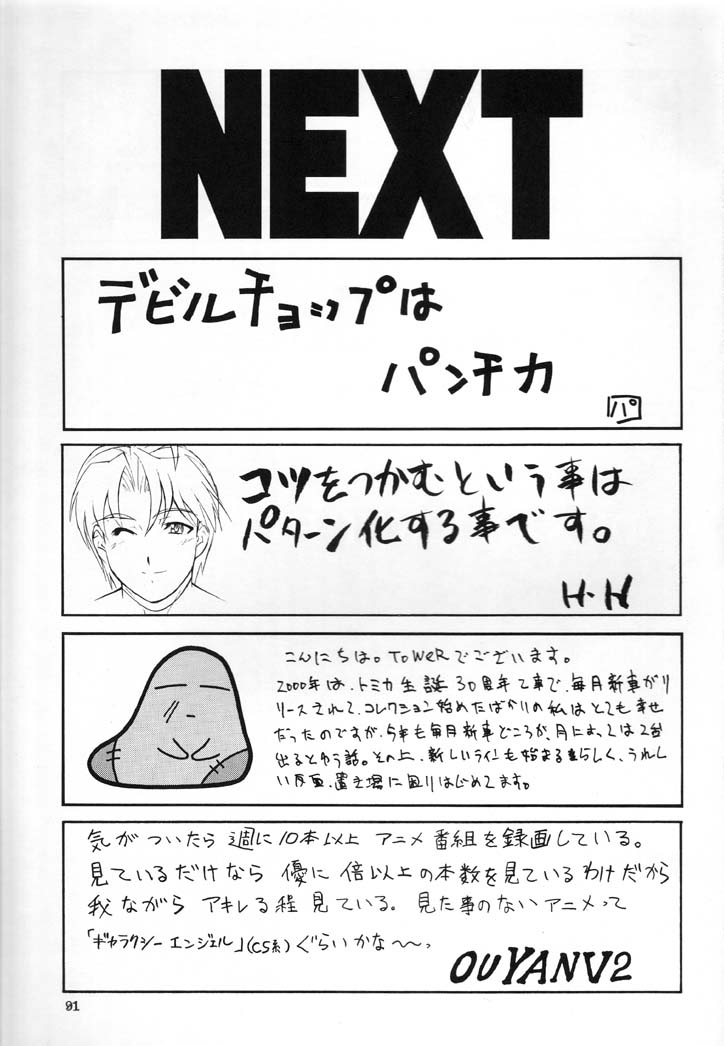 NEXT
デビルチョップは
パンチカ
パ
コツをつかむという事は
パターン化する事です。
H・H
こんにちは。TOWERでございます。
2000年は、トミカ生誕30周年て事で、毎月新車がリ
リースされて、コレクション始めたばかりの私はとても幸せ
だったのですが、今年も毎月新車どころか、月によっては2台
出るとゆう話。その上、新しいラインも始まるらしく、うれし
い反面、置き場に困りはじめてます。
気がついたら 週に10本以上 アニメ番組を録画している。
見ているだけなら 優に倍以上の本数を見ているわけだから
我ながら アキレる程見ている。見た事のないアニメって
「ギャラクシーエンジェル」(CS系)ぐらいかな〜〜っ
OUYANV2
91